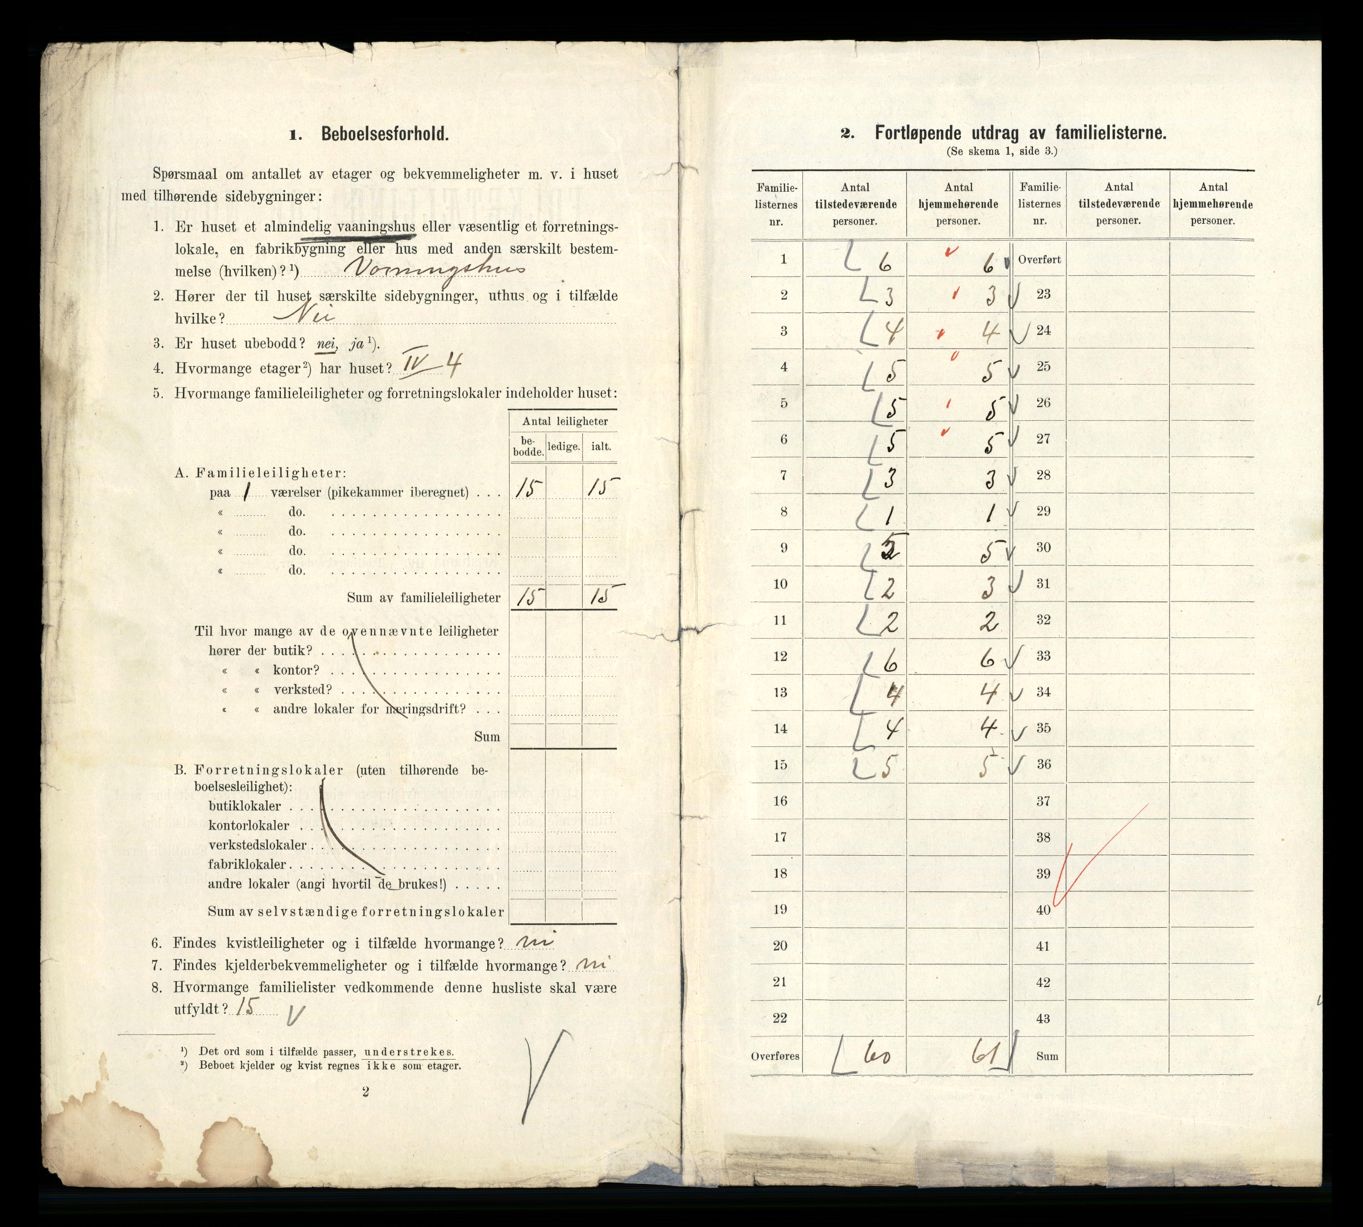 1. Beboelsesforhold.
Spørsmaal om antallet av etager og bekvemmeligheter m. v. i huset
med tilhørende sidebygninger:
1. Er huset et almindelig vaaningshus eller væsentlig et forretnings-
lokale, en fabrikbygning eller hus med anden særskilt bestem-
melse (hvilken)? ¹) Vaaningshus
2. Hører der til huset særskilte sidebygninger, uthus og i tilfælde
hvilke? Nei
3. Er huset ubebodd? nei, ja ¹).
4. Hvormange etager ²) har huset? IV 4
5. Hvormange familieleiligheter og forretningslokaler indeholder huset:
Antal leiligheter
be-
bodde. ledige. ialt.
A. Familieleiligheter:
paa 1 værelser (pikekammer iberegnet) . . . 15 15
« do.
« do.
« do.
« do.
Sum av familieleiligheter 15 15
Til hvor mange av de ovennævnte leiligheter
hører der butik?
« « kontor?
« « verksted?
« « andre lokaler for næringsdrift? . . .
Sum
B. Forretningslokaler (uten tilhørende be-
boelsesleilighet):
butiklokaler
kontorlokaler
verkstedslokaler
fabriklokaler
andre lokaler (angi hvortil de brukes!)
Sum av selvstændige forretningslokaler
6. Findes kvistleiligheter og i tilfælde hvormange? nei
7. Findes kjelderbekvemmeligheter og i tilfælde hvormange? nei
8. Hvormange familielister vedkommende denne husliste skal være
utfyldt? 15
¹) Det ord som i tilfælde passer, understrekes.
²) Beboet kjelder og kvist regnes ikke som etager.
2
2. Fortløpende utdrag av familielisterne.
(Se skema 1, side 3.)
Familie-
listernes
nr. Antal
tilstedeværende
personer. Antal
hjemmehørende
personer. Familie-
listernes
nr. Antal
tilstedeværende
personer. Antal
hjemmehørende
personer.
1 6 6 Overført
2 3 3 23
3 4 4 24
4 5 5 25
5 5 5 26
6 5 5 27
7 3 3 28
8 1 1 29
9 5 5 30
10 2 3 31
11 2 2 32
12 6 6 33
13 4 4 34
14 4 4 35
15 5 5 36
16 37
17 38
18 39
19 40
20 41
21 42
22 43
Overføres 60 61 Sum